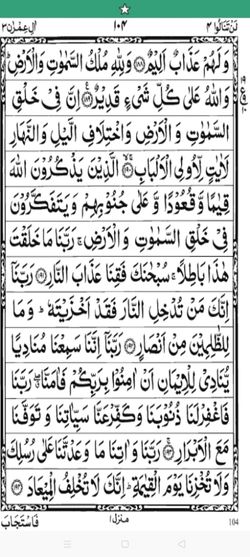 لن تنالوا ۴ ۱۰۴ اٰل عمرٰن ۳
وَ لَهُمْ عَذَابٌ اَلِيْمٌ ۝۱۸۸ وَ لِلّٰهِ مُلْكُ السَّمٰوٰتِ وَ الْاَرْضِ
وَ اللّٰهُ عَلٰى كُلِّ شَیْءٍ قَدِيْرٌ ۝۱۸۹ اِنَّ فِیْ خَلْقِ
السَّمٰوٰتِ وَ الْاَرْضِ وَ اخْتِلَافِ الَّيْلِ وَ النَّهَارِ
لَاٰيٰتٍ لِّاُولِی الْاَلْبَابِ ۝۱۹۰ الَّذِيْنَ يَذْكُرُوْنَ اللّٰهَ
قِيٰمًا وَّ قُعُوْدًا وَّ عَلٰى جُنُوْبِهِمْ وَ يَتَفَكَّرُوْنَ
فِیْ خَلْقِ السَّمٰوٰتِ وَ الْاَرْضِ ۚ رَبَّنَا مَا خَلَقْتَ
هٰذَا بَاطِلًا ۚ سُبْحٰنَكَ فَقِنَا عَذَابَ النَّارِ ۝۱۹۱ رَبَّنَاۤ
اِنَّكَ مَنْ تُدْخِلِ النَّارَ فَقَدْ اَخْزَيْتَهٗ ؕ وَ مَا
لِلظّٰلِمِيْنَ مِنْ اَنْصَارٍ ۝۱۹۲ رَبَّنَاۤ اِنَّنَا سَمِعْنَا مُنَادِيًا
يُّنَادِیْ لِلْاِيْمَانِ اَنْ اٰمِنُوْا بِرَبِّكُمْ فَاٰمَنَّا ۖۗ رَبَّنَا
فَاغْفِرْ لَنَا ذُنُوْبَنَا وَ كَفِّرْ عَنَّا سَيِّاٰتِنَا وَ تَوَفَّنَا
مَعَ الْاَبْرَارِ ۝۱۹۳ رَبَّنَا وَ اٰتِنَا مَا وَعَدْتَّنَا عَلٰى رُسُلِكَ
وَ لَا تُخْزِنَا يَوْمَ الْقِيٰمَةِ ؕ اِنَّكَ لَا تُخْلِفُ الْمِيْعَادَ ۝۱۹۴
فَاسْتَجَابَ منزل ۱ 104